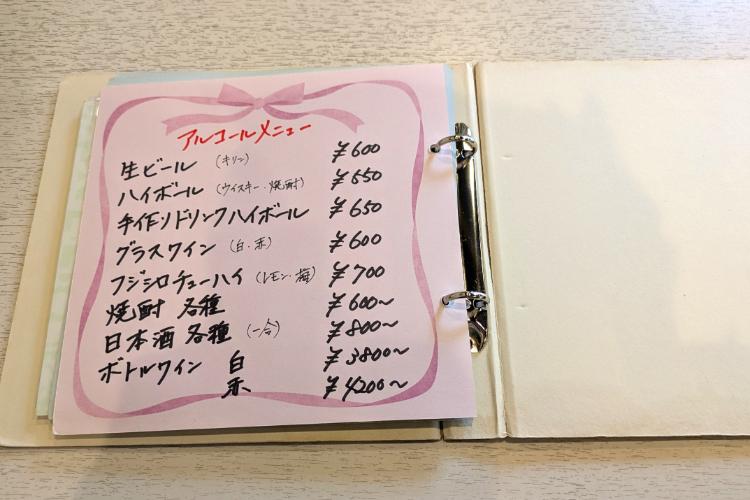 アルコールメニュー
生ビール (キリン) ¥600
ハイボール (ウイスキー・焼酎) ¥550
手作りドリンクハイボール ¥650
グラスワイン (白・赤) ¥600
フジシロチューハイ (レモン・梅) ¥700
焼酎 各種 ¥600〜
日本酒 各種 (一合) ¥800〜
ボトルワイン 白 ¥3800〜
赤 ¥4200〜